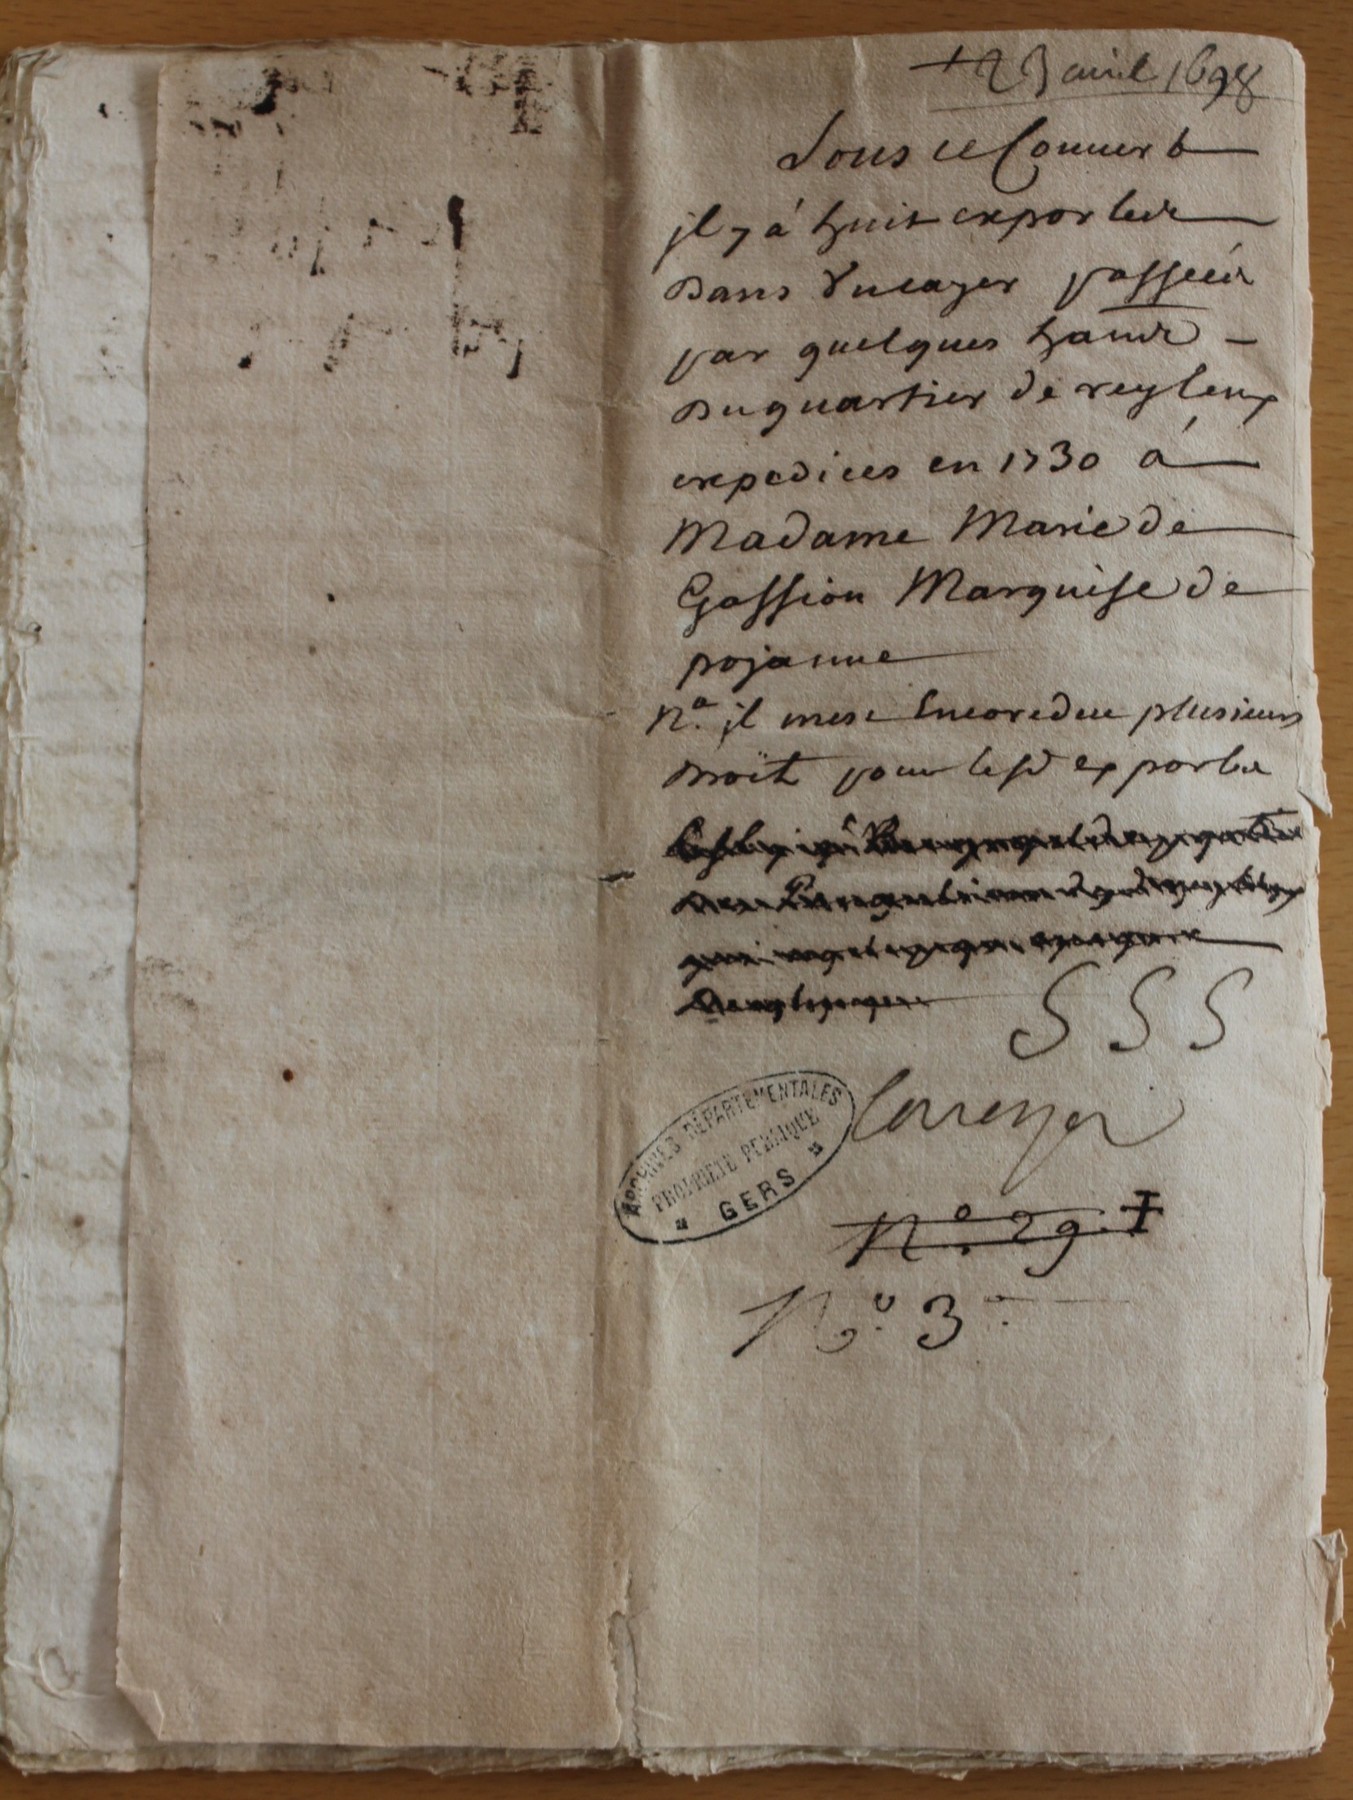 23 avril 1698
Sous ce Couvert
il y á huit exporles
Dans Un cayer passées
par quelques
Du quartier de
expediees en 1730 á
Madame Marie de
Gassion Marquise de
pojanne
Na. il mest Encore deu plusieurs
Droits pour lesd exporles
SSS
ARCHIVES DÉPARTEMENTALES
PROPRIÉTÉ PUBLIQUE
GERS
No. 29.
No. 3